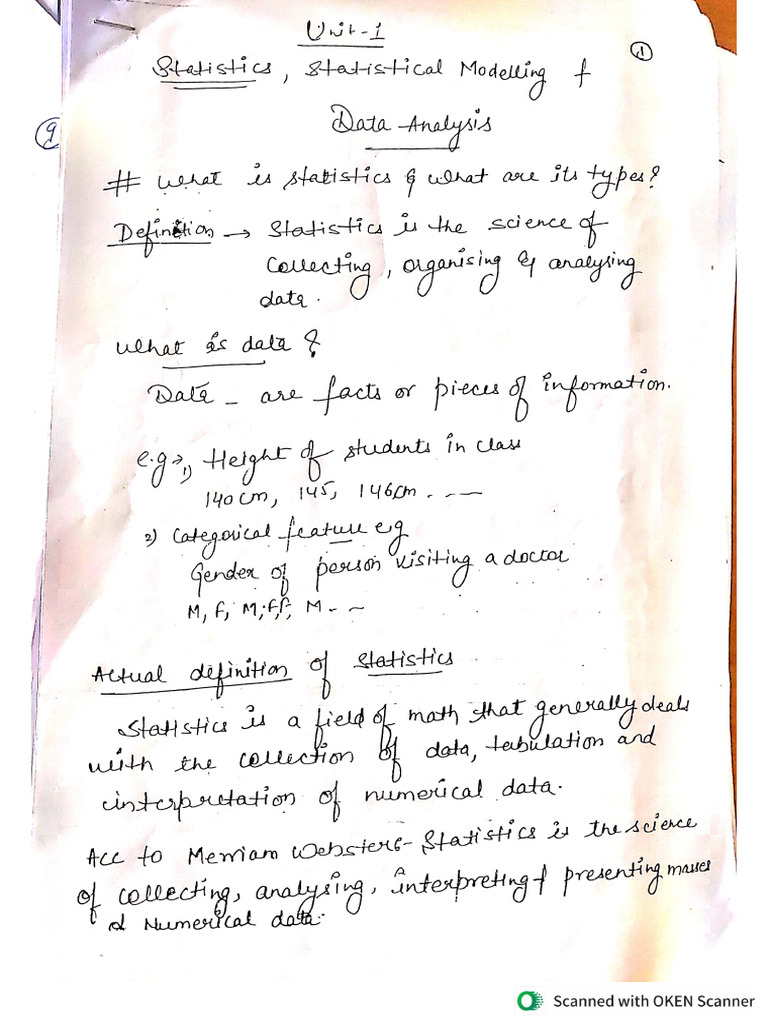 Unit-1
1
Statistics, Statistical Modelling &
9
Data Analysis
# What is statistics & what are its types?
Definition → Statistics is the science of
Collecting, organising & analysing
data.
What is data?
Data - are facts or pieces of information.
e.g → 1) Height of students in class
140 cm, 145, 146cm. ---
2) Categorical feature e.g
Gender of person visiting a doctor
M, F, M, F, F, M - ~
Actual definition of Statistics
Statistics is a field of math that generally deals
with the collection of data, tabulation and
interpretation of numerical data.
Acc to Merriam Websters- Statistics is the science
of collecting, analysing, interpreting & presenting masses
of Numerical data.
Scanned with OKEN Scanner